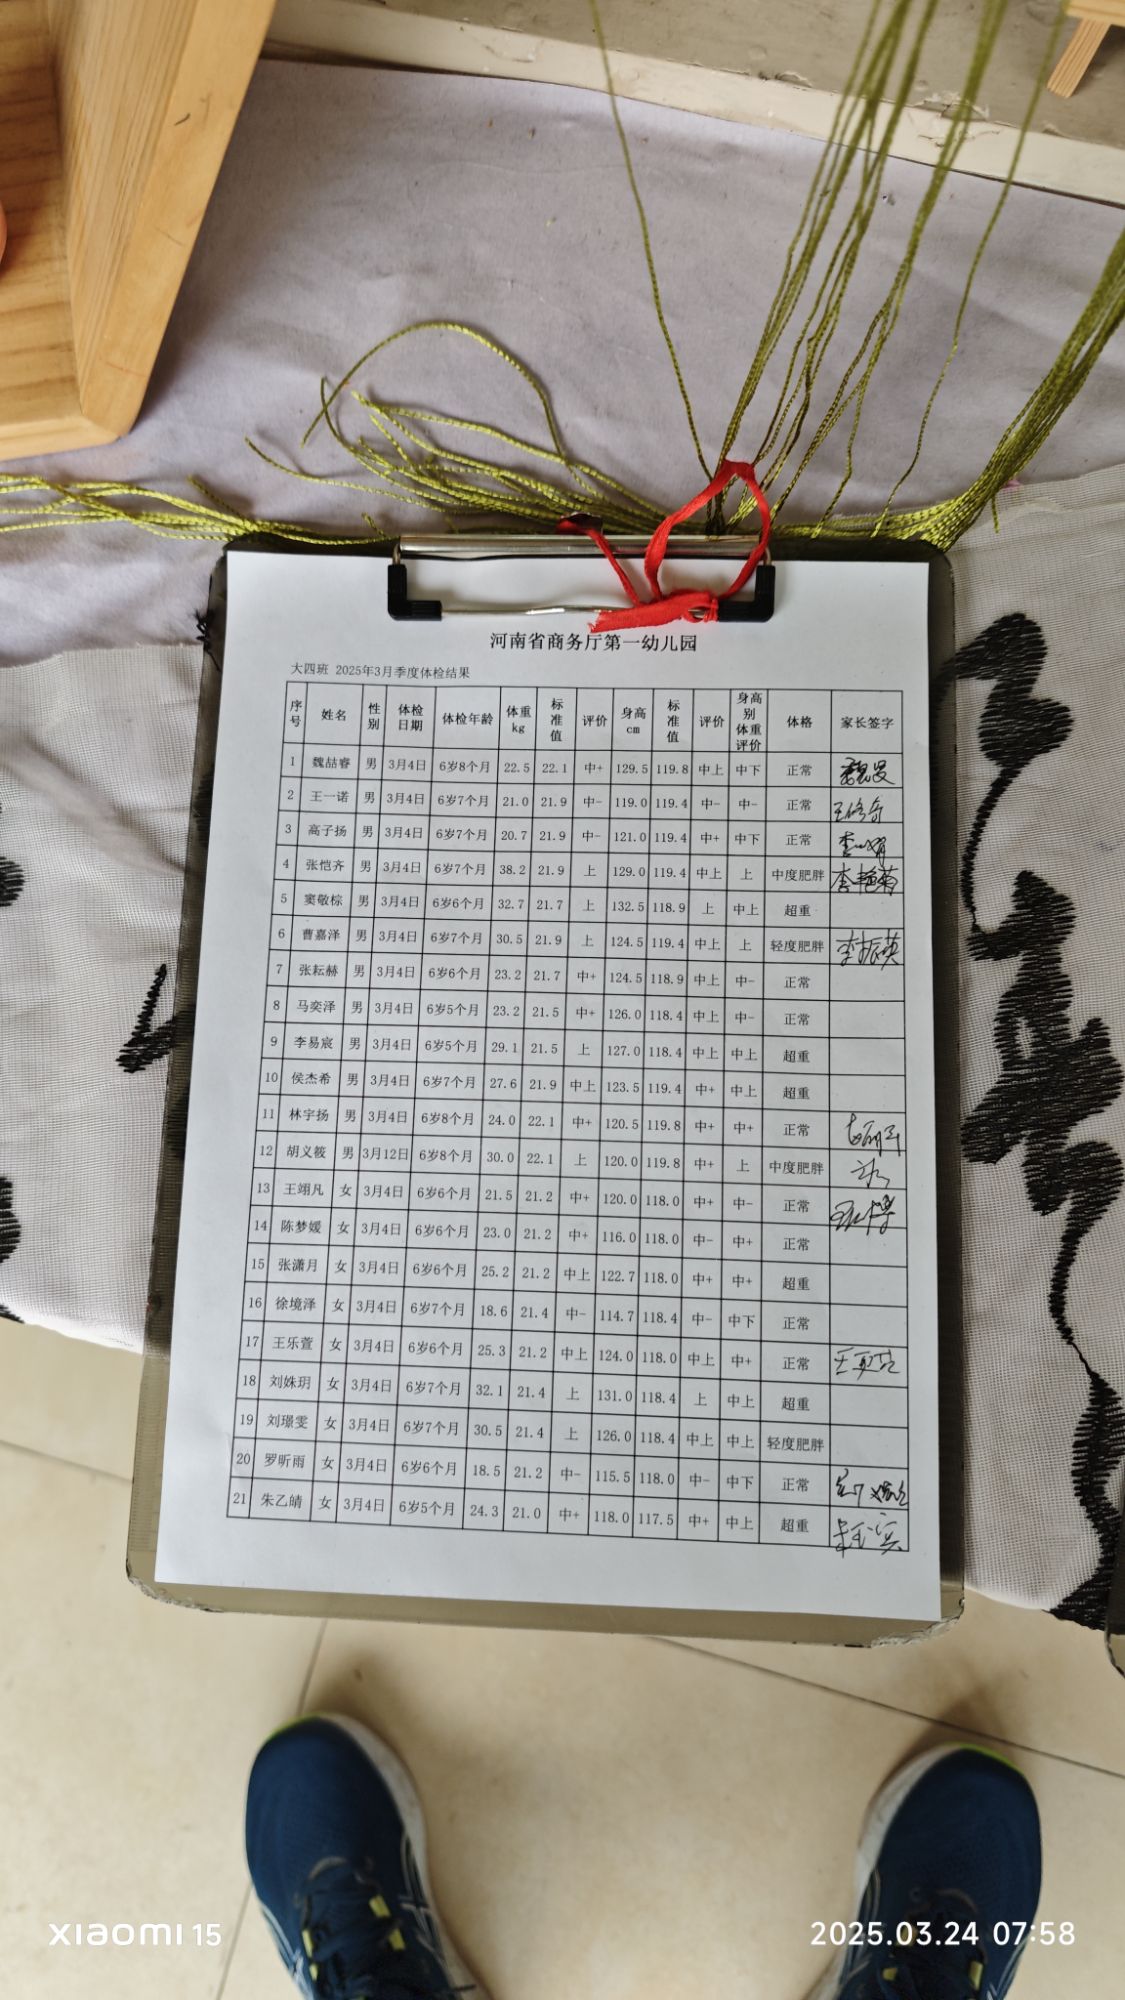 河南省商务厅第一幼儿园
大四班 2025年3月季度体检结果
序号 姓名 性别 体检日期 体检年龄 体重kg 标准值 评价 身高cm 标准值 评价 身高别体重评价 体格 家长签字
1 魏喆睿 男 3月4日 6岁8个月 22.5 22.1 中+ 129.5 119.8 中上 中下 正常
2 王一诺 男 3月4日 6岁7个月 21.0 21.9 中- 119.0 119.4 中- 中- 正常
3 高子扬 男 3月4日 6岁7个月 20.7 21.9 中- 121.0 119.4 中+ 中下 正常
4 张恺齐 男 3月4日 6岁7个月 38.2 21.9 上 129.0 119.4 中上 上 中度肥胖 李艳菊
5 窦敬棕 男 3月4日 6岁6个月 32.7 21.7 上 132.5 118.9 上 中上 超重
6 曹嘉泽 男 3月4日 6岁7个月 30.5 21.9 上 124.5 119.4 中上 上 轻度肥胖 李振英
7 张耘赫 男 3月4日 6岁6个月 23.2 21.7 中+ 124.5 118.9 中上 中- 正常
8 马奕泽 男 3月4日 6岁5个月 23.2 21.5 中+ 126.0 118.4 中上 中- 正常
9 李易宸 男 3月4日 6岁5个月 29.1 21.5 上 127.0 118.4 中上 中上 超重
10 侯杰希 男 3月4日 6岁7个月 27.6 21.9 中上 123.5 119.4 中+ 中上 超重
11 林宇扬 男 3月4日 6岁8个月 24.0 22.1 中+ 120.5 119.8 中+ 中+ 正常
12 胡义筱 男 3月12日 6岁8个月 30.0 22.1 上 120.0 119.8 中+ 上 中度肥胖
13 王翊凡 女 3月4日 6岁6个月 21.5 21.2 中+ 120.0 118.0 中+ 中- 正常
14 陈梦媛 女 3月4日 6岁6个月 23.0 21.2 中+ 116.0 118.0 中- 中+ 正常
15 张潇月 女 3月4日 6岁6个月 25.2 21.2 中上 122.7 118.0 中+ 中+ 超重
16 徐境泽 女 3月4日 6岁7个月 18.6 21.4 中- 114.7 118.4 中- 中下 正常
17 王乐萱 女 3月4日 6岁6个月 25.3 21.2 中上 124.0 118.0 中上 中+ 正常
18 刘姝玥 女 3月4日 6岁7个月 32.1 21.4 上 131.0 118.4 上 中上 超重
19 刘璟雯 女 3月4日 6岁7个月 30.5 21.4 上 126.0 118.4 中上 中上 轻度肥胖
20 罗昕雨 女 3月4日 6岁6个月 18.5 21.2 中- 115.5 118.0 中- 中下 正常
21 朱乙皘 女 3月4日 6岁5个月 24.3 21.0 中+ 118.0 117.5 中+ 中上 超重
xiaomi 15
2025.03.24 07:58